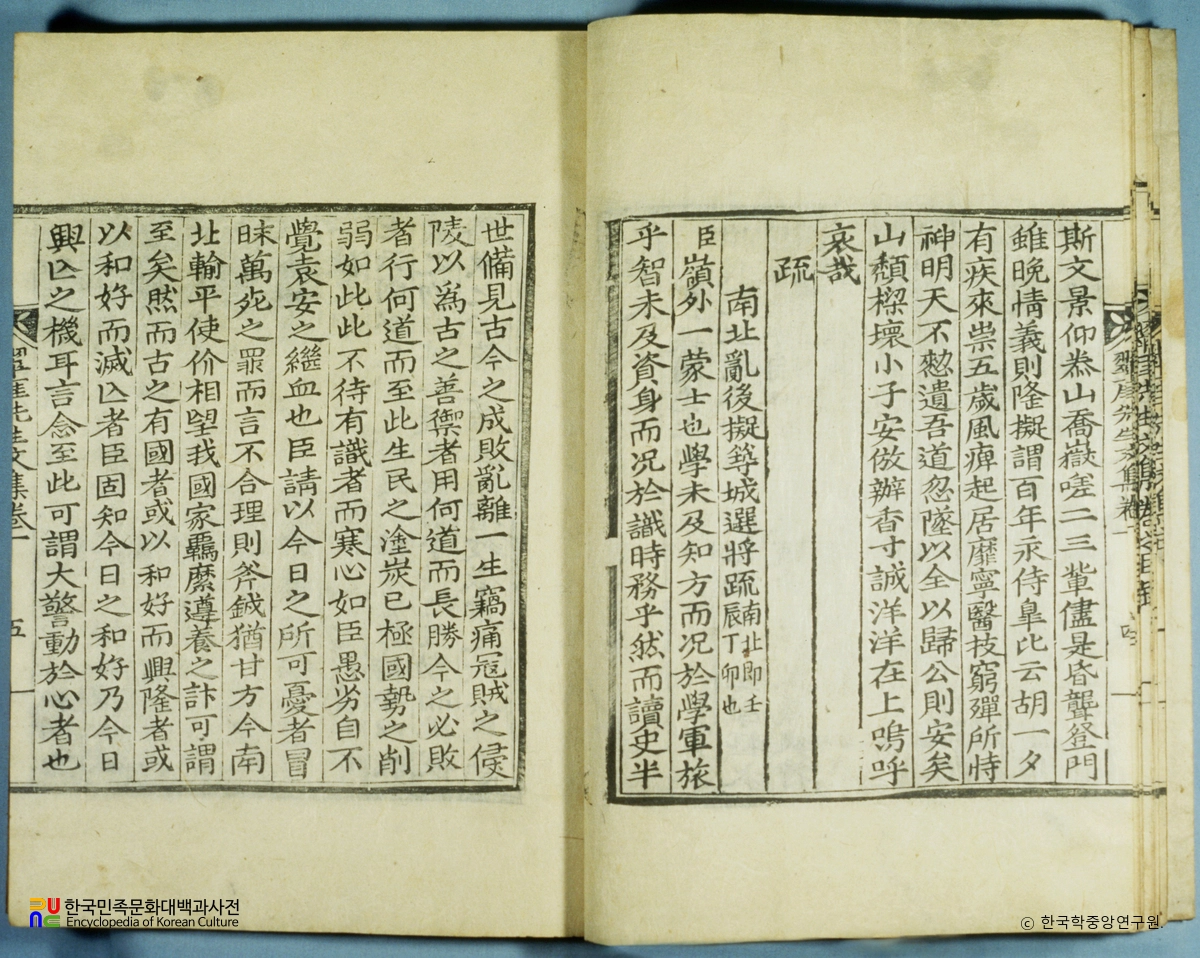 斯文景仰泰山喬嶽嗟二三輩儘是昏聾登門
雖晚情義則隆擬謂百年永侍皐比云胡一夕
有疾來祟五歲風痺起居靡寧醫技窮殫所恃
神明天不憖遺吾道忽墜以全以歸公則安矣
山頹樑壞小子安倣辦香寸誠洋洋在上嗚呼
哀哉
疏
南北亂後擬築城選將疏南北即壬辰丁卯也
臣嶺外一蒙士也學未及知方而况於學軍旅
乎智未及資身而况於識時務乎然而讀史半
世備見古今之成敗亂離一生竊痛冦賊之侵
陵以為古之善禦者用何道而長勝今之必敗
者行何道而至此生民之塗炭已極國勢之削
弱如此此不待有識者而寒心如臣愚劣自不
覺袁安之繼血也臣請以今日之所可憂者冒
昧萬死之罪而言不合理則斧鉞猶甘方今南
北輸平使价相望我國家羈縻遵養之計可謂
至矣然而古之有國者或以和好而興隆者或
以和好而滅亾者臣固知今日之和好乃今日
興亾之機耳言念至此可謂大警動於心者也
先生文集卷一 五
한국민족문화대백과사전
Encyclopedia of Korean Culture
ⓒ 한국학중앙연구원.